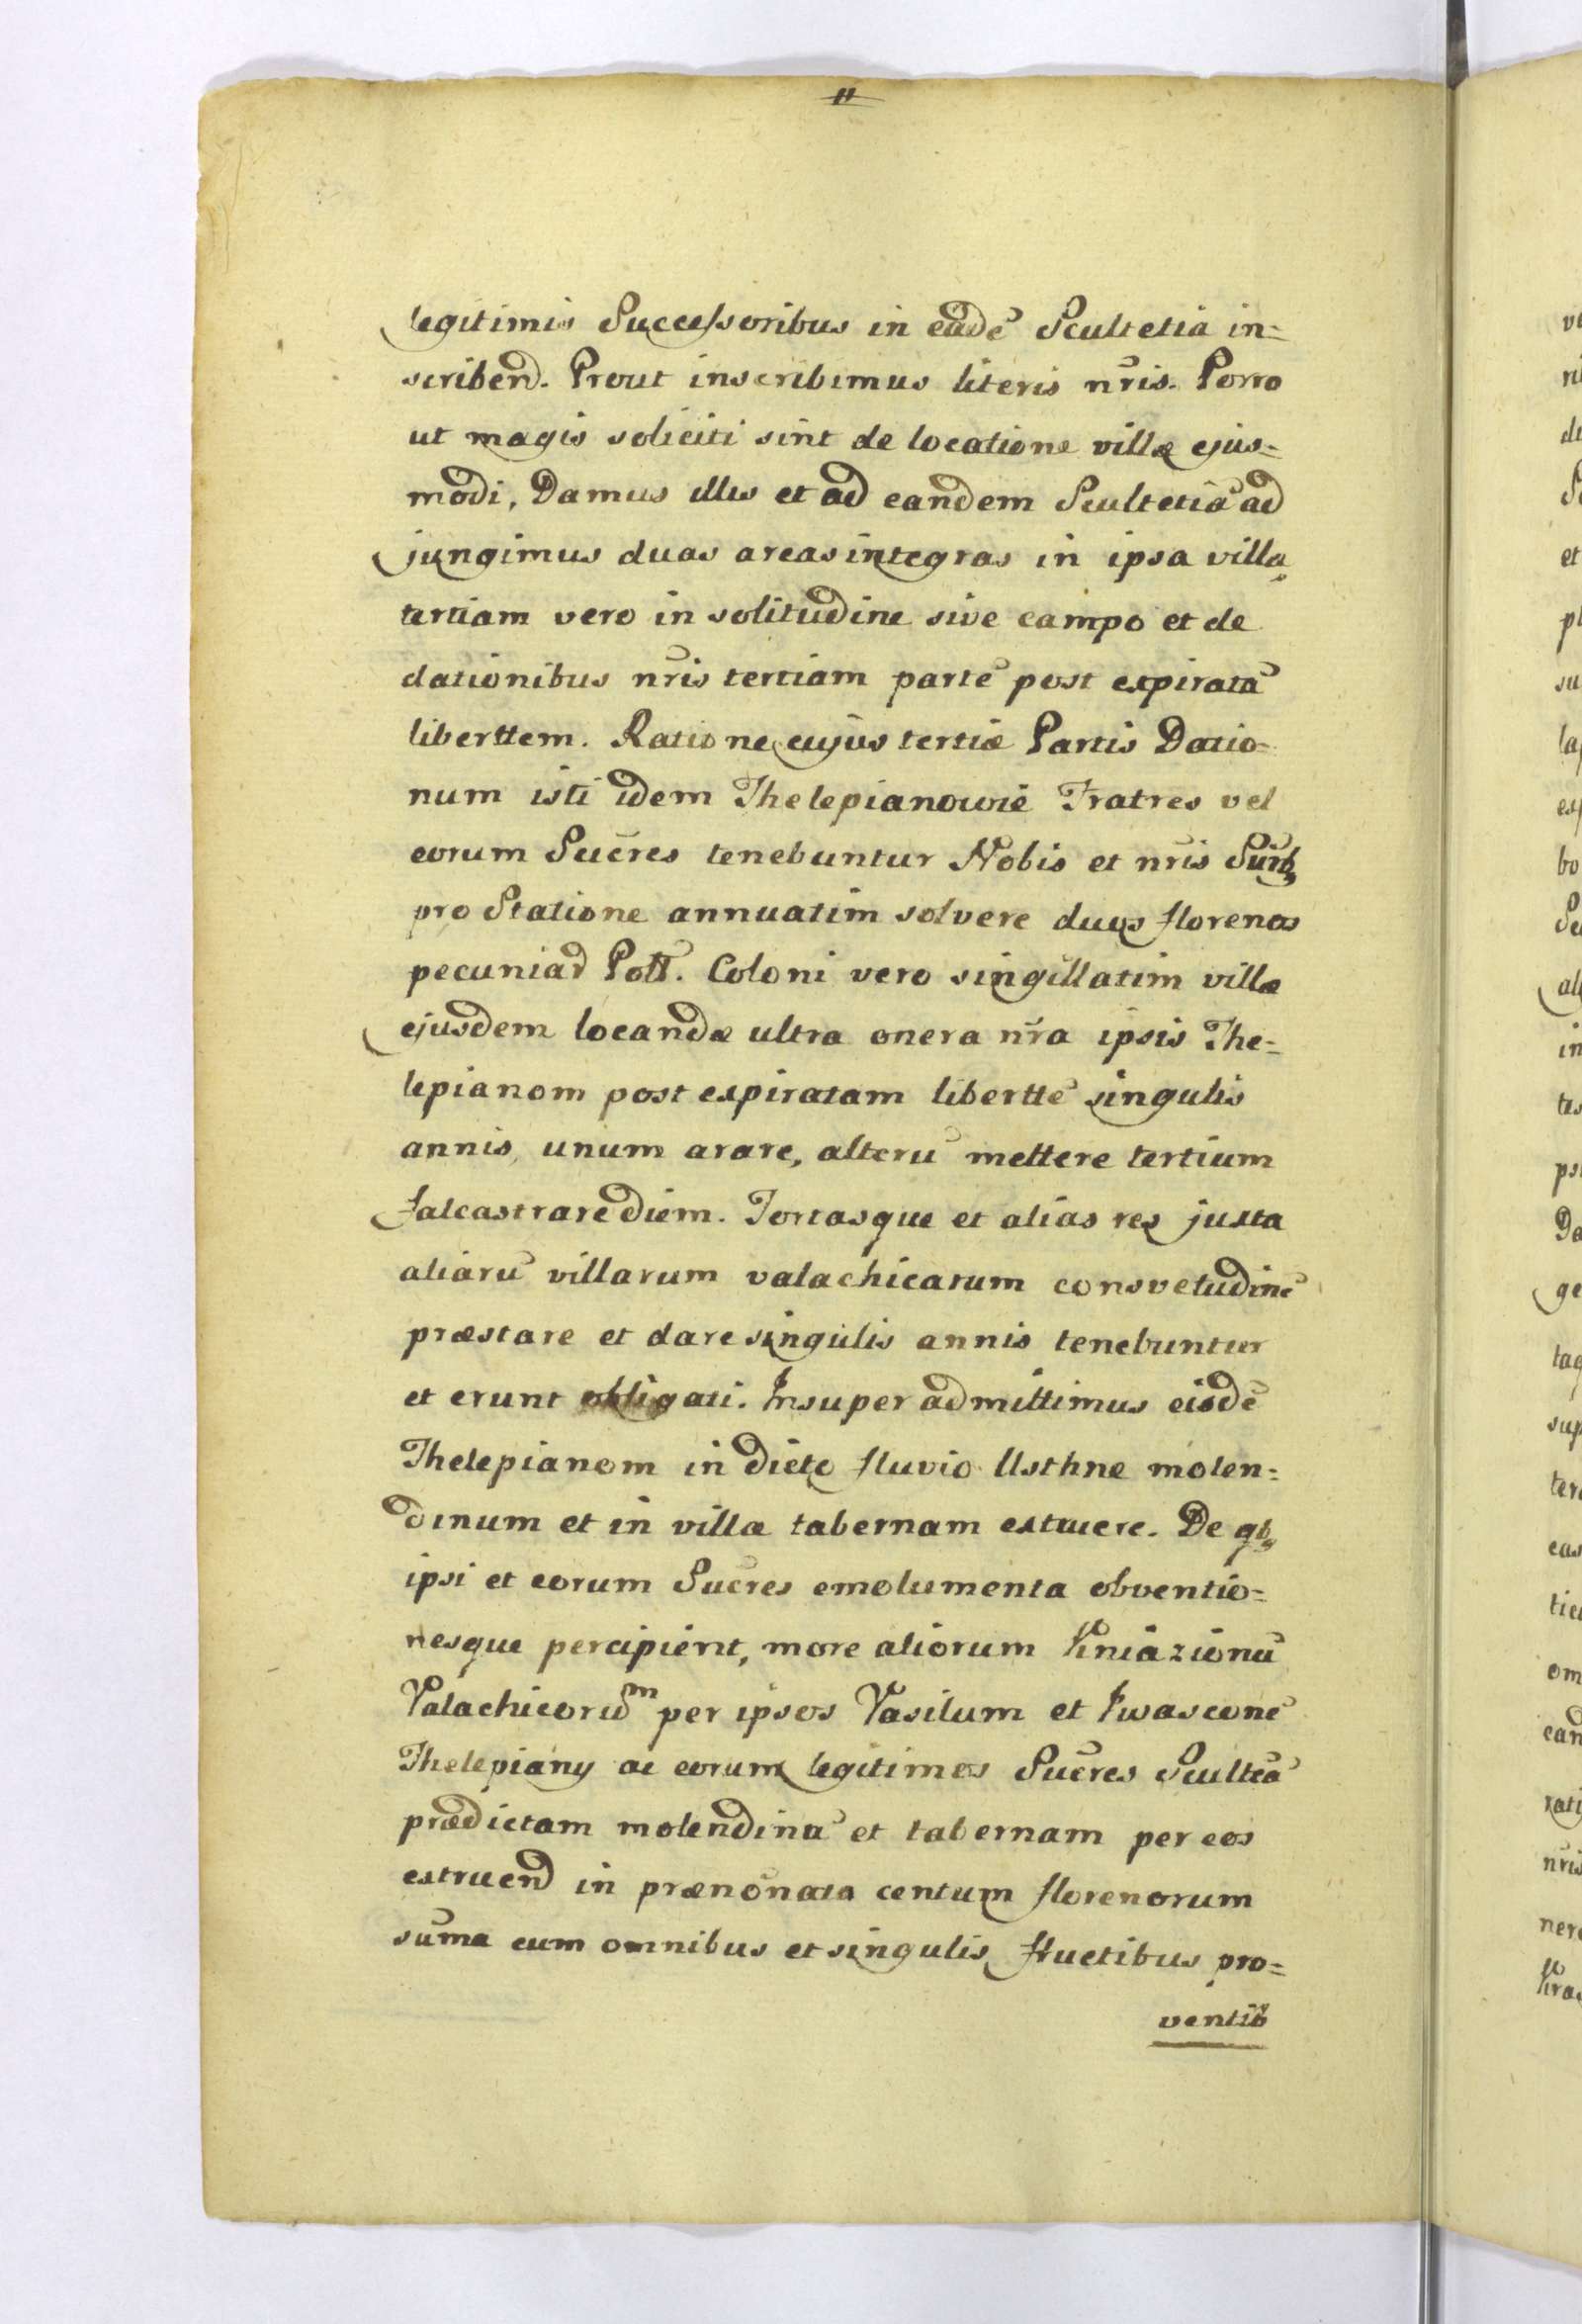 legitimis Successoribus in eadē Scultetia in=
scribend. Prout inscribimus literis nr̄is. Porro
ut magis soliciti sint de locatione villæ ejus=
modi, Damus illis et ad eandem Scultetiā ad
jungimus duas areas integras in ipsa villa,
tertiam vero in solitudine sive campo et de
dationibus nr̄is tertiam partē post expiratā
liberttem. Ratione cujus tertiæ Partis Datio=
num isti idem Thelepianowie Fratres vel
eorum Suc̄res tenebuntur Nobis et nr̄is
pro Statione annuatim solvere duos florenos
pecuniar Poll. Coloni vero singillatim villæ
ejusdem locandæ ultra onera nr̄a ipsis The=
lepianom post expiratam liberttē singulis
annis, unum arare, alterū mettere tertium
falcastrare diem. Tortasque et alias res juxta
aliarū villarum valachicarum consvetudinē
præstare et dare singulis annis tenebuntur
et erunt obligati. Insuper admittimus eisdē
Thelepianom in dicto fluvio Usthne molen=
dinum et in villa tabernam extruere. De qb,
ipsi et eorum Suc̄res emolumenta obventio=
nesque percipient, more aliorum Kniazionū
Valachicorum per ipsos Vasilum et Iwasconē
Thelepiany ac eorum legitimos Suc̄res Scultēā
prædictam molendinū et tabernam per eos
extruend in prænōnata centum florenorum
sum̄a cum omnibus et singulis fructibus pro=
ventib